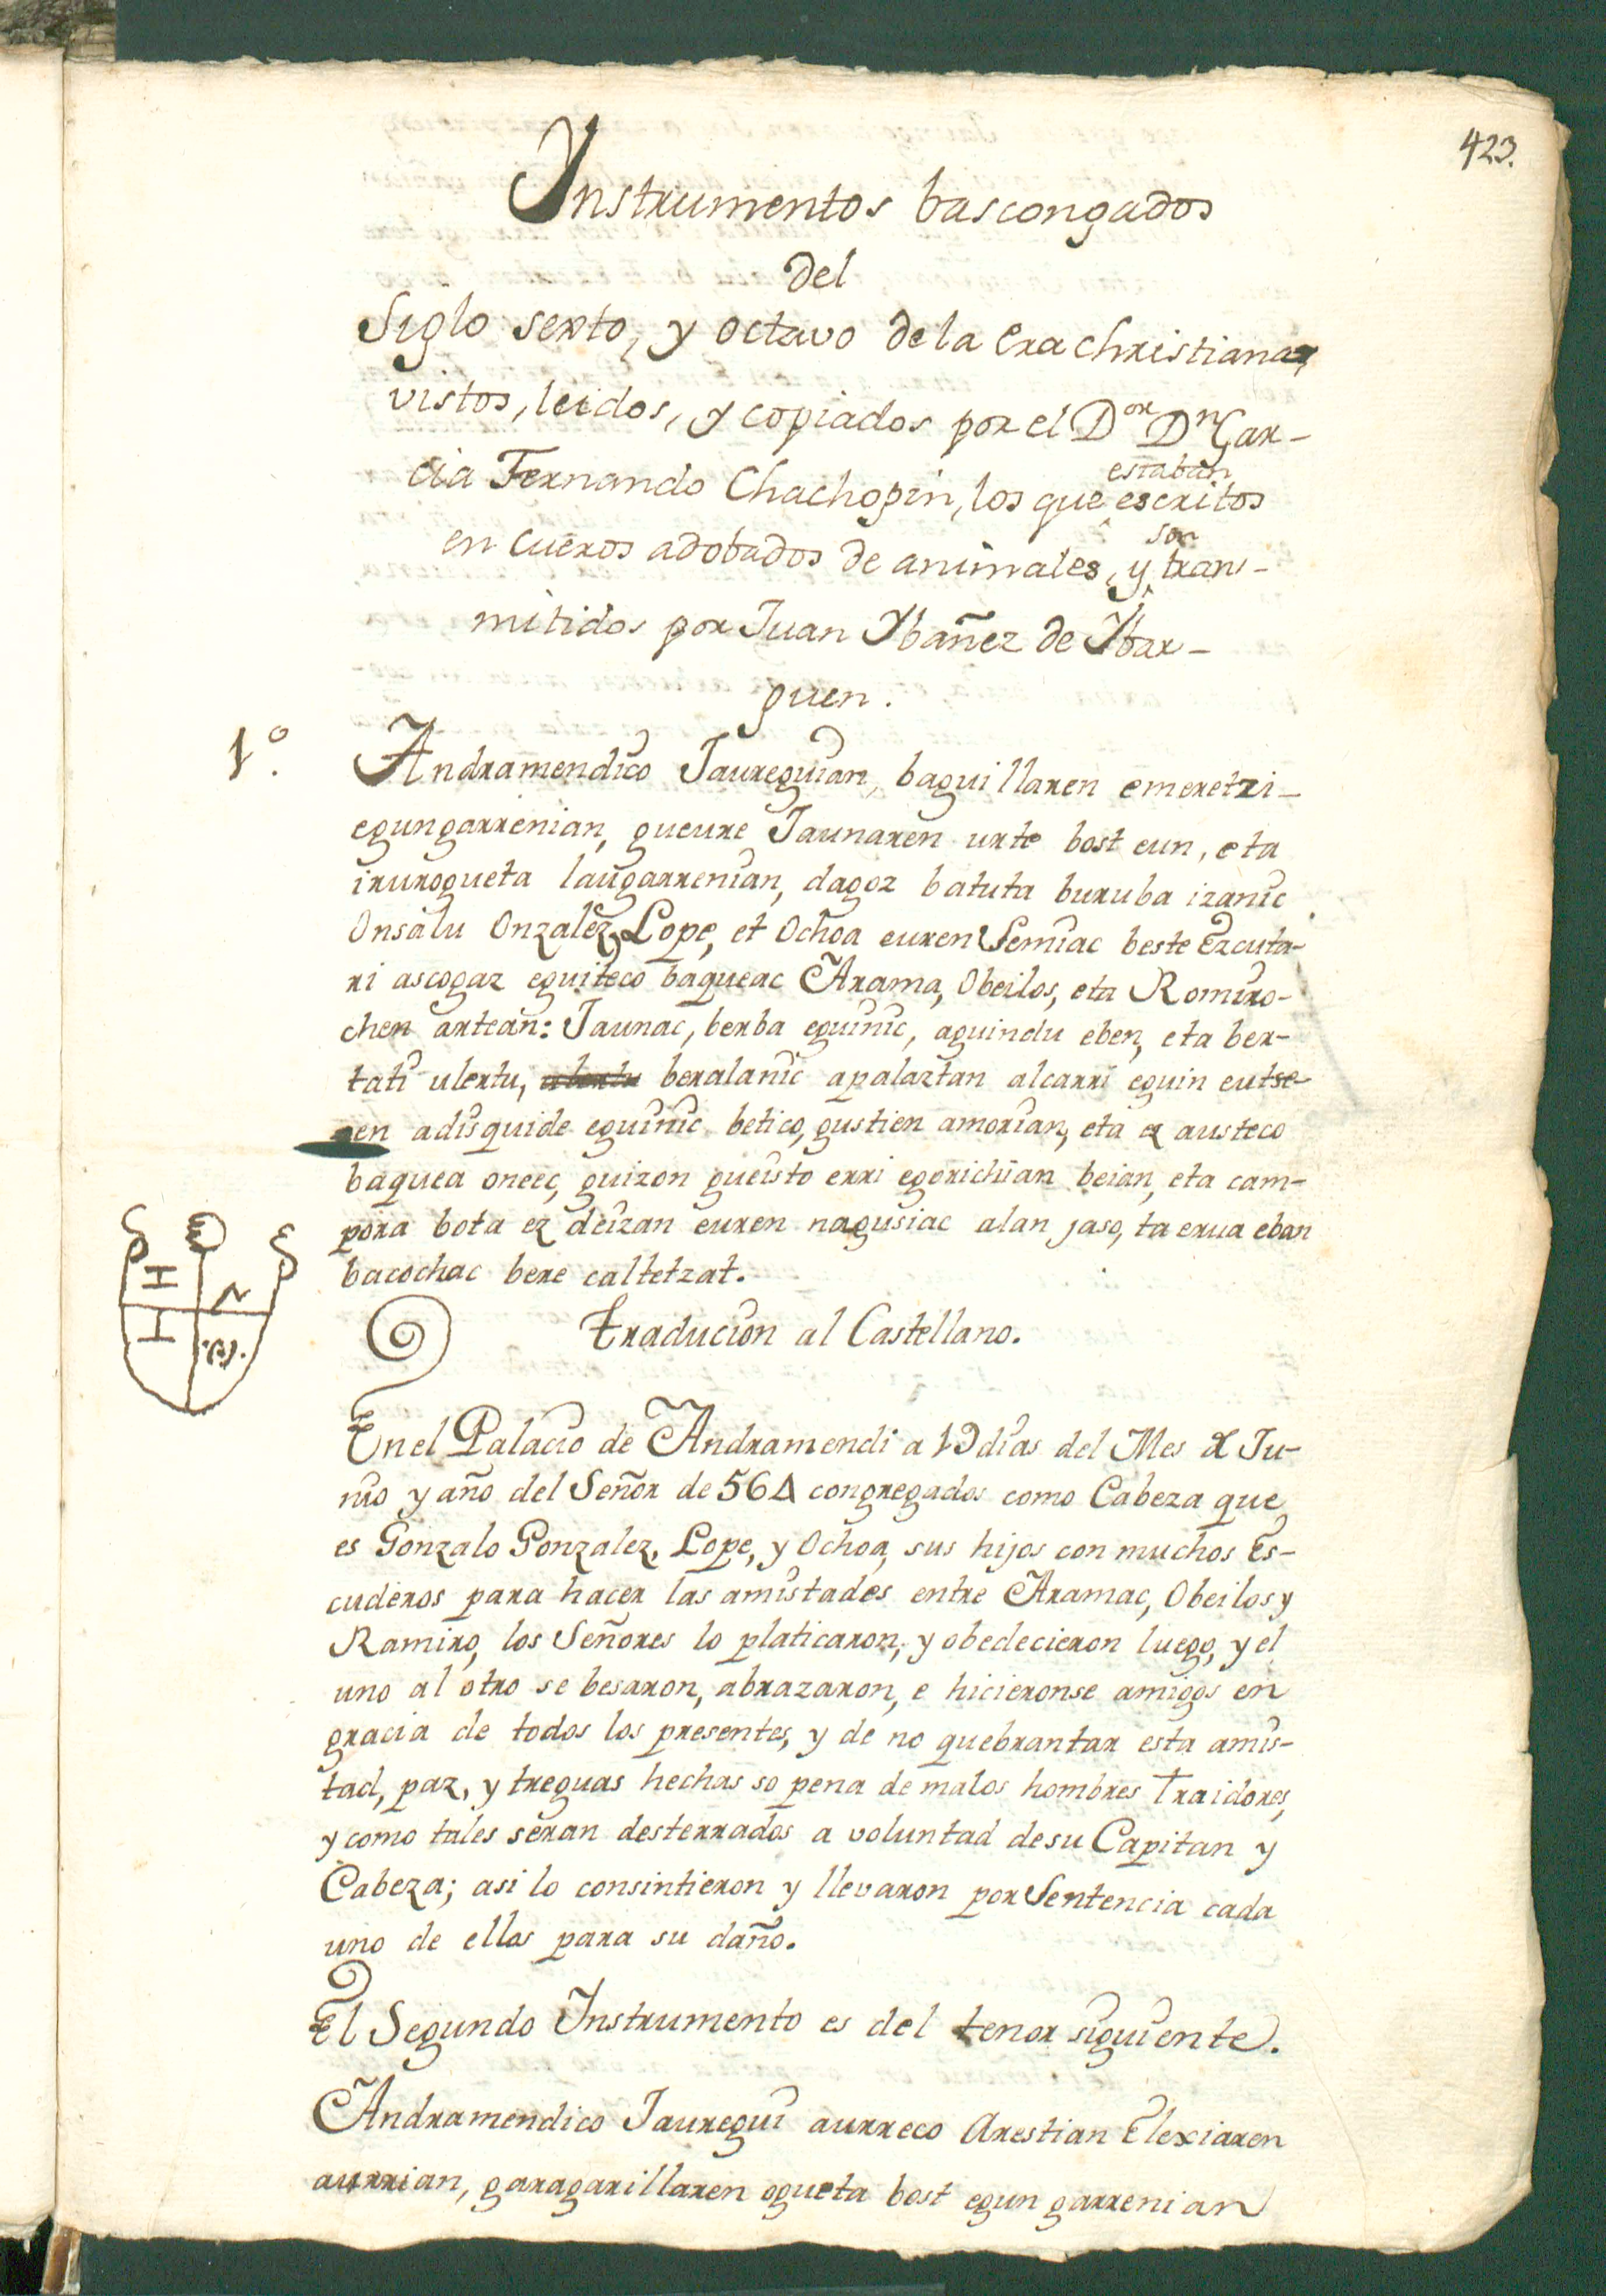 423.
Ynstrumentos bascongados
del
Siglo sexto, y octavo de la Era Christiana,
vistos, leidos, y copiados por el D.or D.n Gar-
cia Fernando Chachopin, los que estaban escritos
en cueros adobados de animales, y son trans-
mitidos por Juan Ybañez de Ybar-
guen.
1.º Andramendico Jaureguian, baguillaren emeretzi-
egungarrenian, gueure Jaunaren urte bost eun, eta
irurogueta laugarrenian, dagoz batuta buruba izanic
Onsalu Onzalez, Lope, et Ochoa euren Semiac beste Ezcuta-
ri ascogaz eguiteco baqueac Arama, Obeilos, eta Romiro-
chen artean: Jaunac, berba eguinic, aguindu eben, eta ber-
tati ulertu, beralanic apalaztan alcarri eguin eutse-
en adisquide eguinic betico, gustien amorian, eta ez austeco
baquea oneec, guizon gueisto erri egorichian beian, eta cam-
pora bota ez deizan euren nagusiac alan jaso, ta erua eban
bacochac bere caltetzat.
Traducion al Castellano.
En el Palacio de Andramendi a 19 dias del Mes de Ju-
nio y año del Señor de 564 congregados como Cabeza que
es Gonzalo Gonzalez, Lope, y Ochoa, sus hijos con muchos Es-
cuderos para hacer las amistades entre Aramac, Obeilos y
Ramiro, los Señores lo platicaron, y obedecieron luego, y el
uno al otro se besaron, abrazaron, e hicieronse amigos en
gracia de todos los presentes, y de no quebrantar esta amis-
tad, paz, y treguas hechas so pena de malos hombres Traidores,
y como tales seran desterrados a voluntad de su Capitan y
Cabeza; asi lo consintieron y llevaron por Sentencia cada
uno de ellos para su daño.
El Segundo Instrumento es del tenor siguiente.
Andramendico Jauregui aurreco Arestian Elexiaren
aurrian, garagarillaren ogueta bost egun garrenian